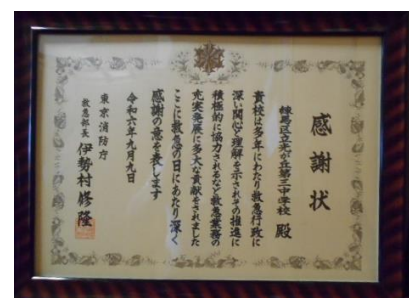 感謝状
練馬区立光が丘第三中学校 殿
貴校は多年にわたり救急行政に
深い関心と理解を示されその推進に
積極的に協力されるなど救急業務の
充実発展に多大な貢献をされました
ここに救急の日にあたり深く
感謝の意を表します
令和六年九月九日
東京消防庁
救急部長 伊勢村修隆